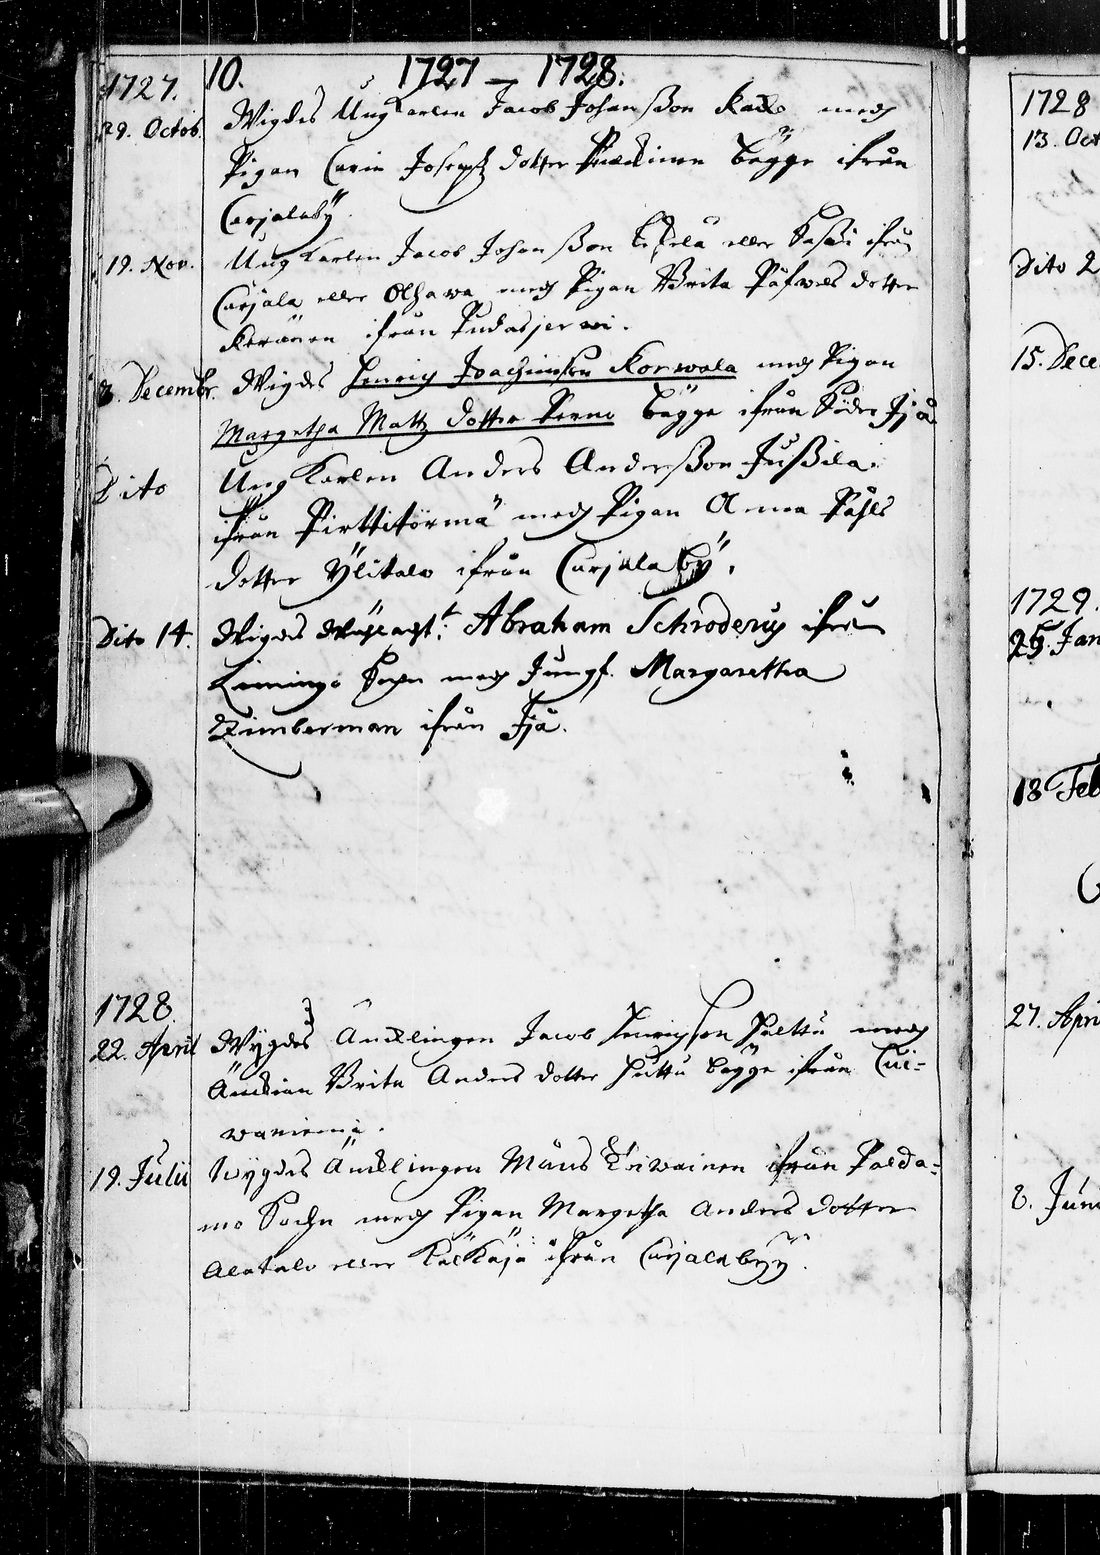 10. 1727 – 1728.
1727.
29. Octob. Wigdes Ungkarlen Jacob Johansson med
Pigan Carin Josephz dotter bägge ifrån
Carjalabÿ.
19. Nov. Ungkarlen Jacob Johansson eller ifrån
Carjala eller Olhawa med Pigan Brita Påfwels dotter
Keränen ifrån Pudasjerwi.
8. Decembr. Wigdes Henric Joachimson Korwala med Pigan
Margetha Mattz dotter bägge ifrån Söder Ijå
Dito Ungkarlen Anders Andersson Jussila
ifrån Pirttitörmä med Pigan Anna Påhls
dotter Ÿlitalo ifrån Carjalabÿ.
Dito 14. Wigdes Abraham Schroderus ifrån
Limingo Sochn med Jungf. Margaretha
Zimberman ifrån Ijå.
1728.
22. April Wygdes Äncklingen Jacob Henrichson med
Änckian Brita Anders dotter Huttu bägge ifrån Cui-
waniemi.
19. Julii Wygdes Äncklingen Måns ifrån Palda-
mo Sochn med Pigan Margetha Anders dotter
Alatalo eller ifrån Carjalabyÿ.
1728
13. Oct
Dito 2
15. Dece
1729.
25. Jan
18 Feb
27. Apri
8. Jun